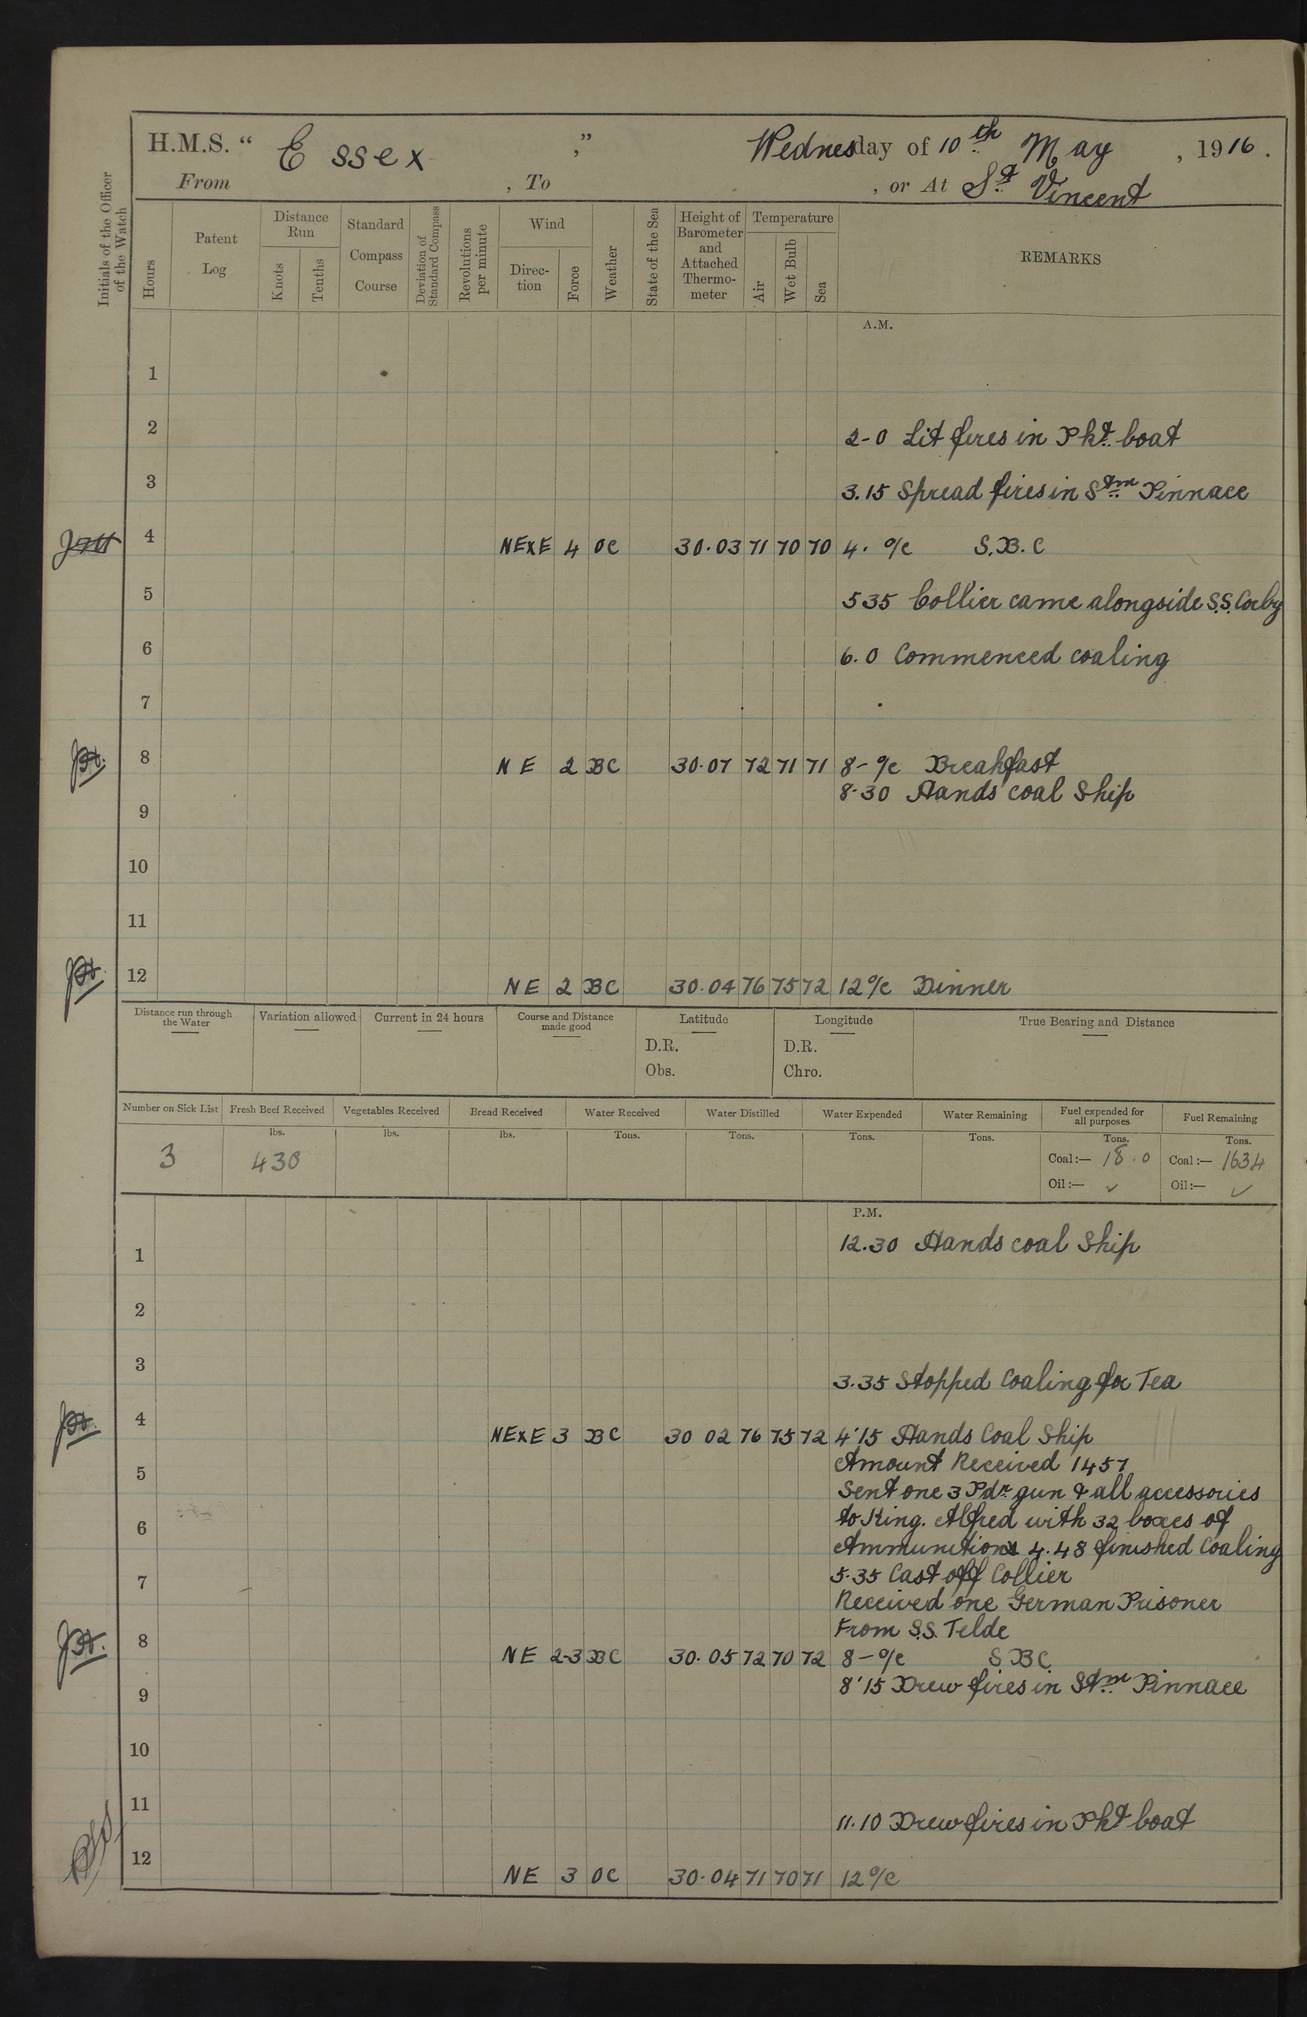 H.M.S. “ Essex , ” Wednesday of 10th May , 1916 .
From , To , or At St Vincent
Initials of the Officer of the Watch
Hours
Patent Log
Distance Run
Knots
Tenths
Standard Compass Course
Deviation of Standard Compass
Revolutions per minute
Wind
Direc- tion
Force
Weather
State of the Sea
Height of Barometer and Attached Thermo- meter
Temperature
Air
Wet Bulb
Sea
REMARKS
A.M.
1
2 2-0 Lit fires in Pkt boat
3 3.15 Spread fires in Stm Pinnace
4 NExE 4 OC 30.03 71 70 70 4. o/c S.B.C
5 5 35 Collier came alongside S.S. Corby
6 6.0 Commenced coaling
7
8 NE 2 BC 30.07 72 71 71 8- o/c Breakfast
8-30 Hands coal Ship
9
10
11
12 NE 2 BC 30.04 76 75 72 12 o/c Dinner
Distance run through the Water
Variation allowed
Current in 24 hours
Course and Distance made good
Latitude
D.R.
Obs.
Longitude
D.R.
Chro.
True Bearing and Distance
Number on Sick List
3
Fresh Beef Received
lbs.
430
Vegetables Received
lbs.
Bread Received
lbs.
Water Received
Tons.
Water Distilled
Tons.
Water Expended
Tons.
Water Remaining
Tons.
Fuel expended for all purposes
Tons.
Coal:— 18.0
Oil:— ✓
Fuel Remaining
Tons.
Coal:— 1634
Oil:— ✓
P.M.
12.30 Hands coal Ship
1
2
3 3.35 Stopped Coaling for Tea
4 NExE 3 BC 30 02 76 75 72 4'15 Hands Coal Ship
Amount Received 1457
5 Sent one 3 Pdr gun & all accessories
to King. Alfred with 32 boxes of
6 Ammunition 4.48 finished Coaling
7 5.35 Cast off Collier
Received one German Prisoner
From S.S. Telde
8 NE 2-3 BC 30.05 72 70 72 8- o/c S B C
8'15 Drew fires in Stm Pinnace
9
10
11 11.10 Drew fires in Pkt boat
12 NE 3 OC 30.04 71 70 71 12 o/c